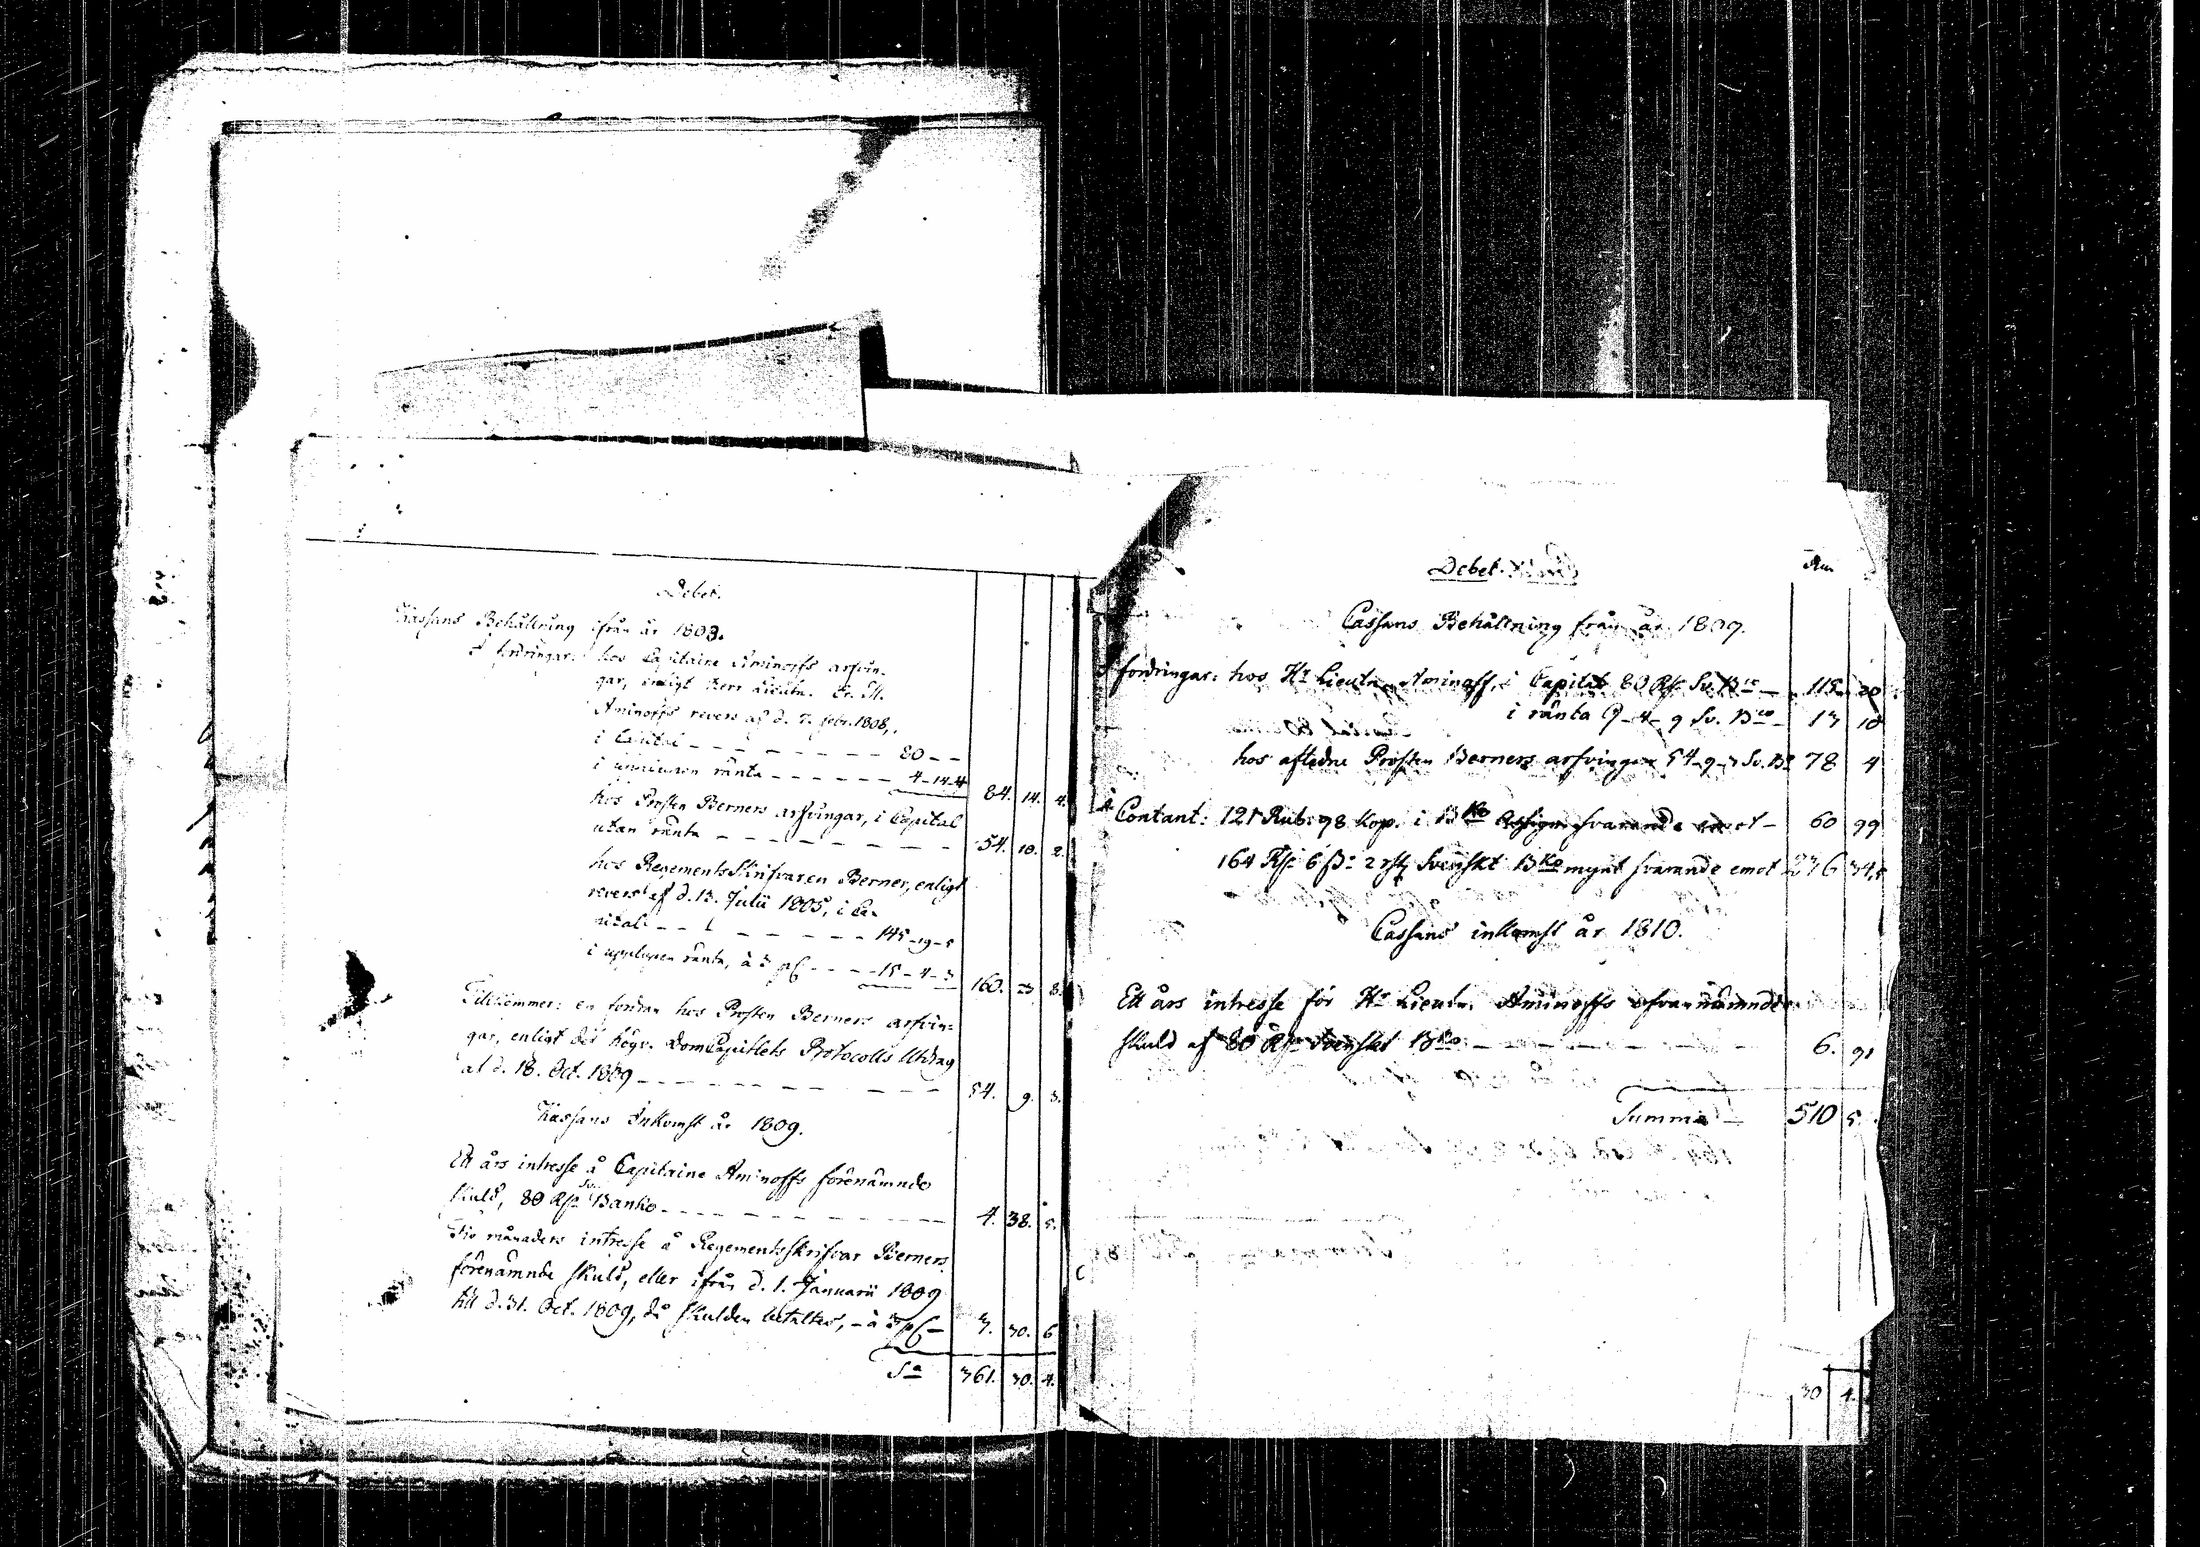 Debet.
Kassans Behållning ifrån år 1808.
I fordringar: hos Capitaine Aminoffs arfvin-
gar, enligt Herr Lieutn.
Aminoffs revers af d. 7. febr. 1808,
i Capital - - - - - - - 80 - -
i upplupen ränta - - - - - - 4-14-4 84. 14. 4.
hos Prosten Berners arfvingar, i Capital
utan ränta - - - - - - - - 54. 10. 2.
hos RegementsSkrifvaren Berner, enligt
revers af d. 13. Julii 1805, i Ca-
pital - - - - - - - 145-19-5
i upplupen ränta, à 3 pC - - - -15-4-3 160. 23 8.
Tillkommer: en fordran hos Prosten Berners arfvin-
gar, enligt det högv. DomCapitlets Protocolls Utdrag
af d. 18. Oct. 1809 - - - - - - - - 54. 9. 3.
Kassans Inkomst år 1809.
Ett års intresse å Capitaine Aminoffs förenämnde
skuld, 80 Rdr Sv. Banko - - - - - - - - - 4. 38. 5.
Tio månaders intresse å Regementsskrifvar Berners
förenämnde skuld, eller ifrån d. 1. Januarii 1809
till d. 31. Oct. 1809, då skulden betaltes, - à 3 pC - 3. 30. 6
Sa 361. 30. 4.
Debet.
Cassans Behållning från år 1809.
I fordringar: hos Hr Lieutn. Aminoff, i Capital 80 Rdr Sv. Bco - 115 20
i ränta 9-4-9 Sv. Bco - 13 10
hos afledne Prosten Berners arfvingar 54-9-3 Sv. Bo 78 4
Contant: 121 Rub: 98 Kop. i Bko Assign. svarande emot - 60 99
164 Rdr 6 ß: 2 rst Svenskt Bko mynt svarande emot 236 34,5
Cassans inkomst år 1810.
Ett års intresse för Hr Lieutn. Aminoffs ofvannämnde
skuld af 80 Rdr Svenskt Bko - - - - - - - 6. 91
Summa - 510 5
30 4.